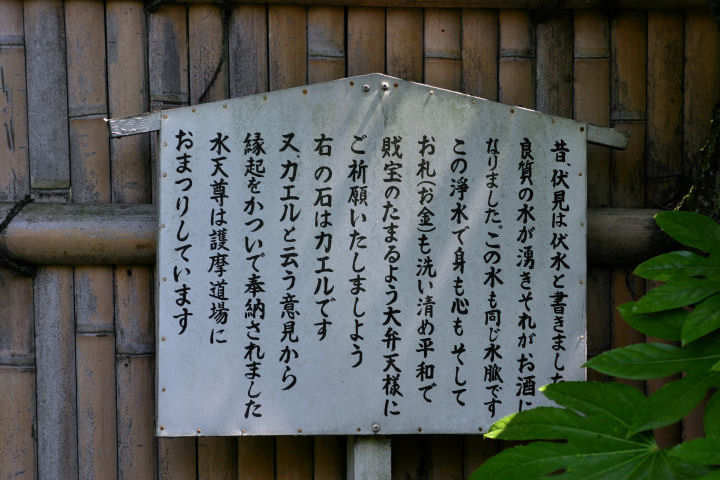 昔、伏見は伏水と書きました
良質の水が湧きそれがお酒に
なりました。この水も同じ水脈です
この浄水で身も心も そして
お札(お金)も洗い清め平和で
財宝のたまるよう大弁天様に
ご祈願いたしましよう
右の石はカエルです
又、カエルと云う意見から
縁起をかついで奉納されました
水天尊は護摩道場に
おまつりしています